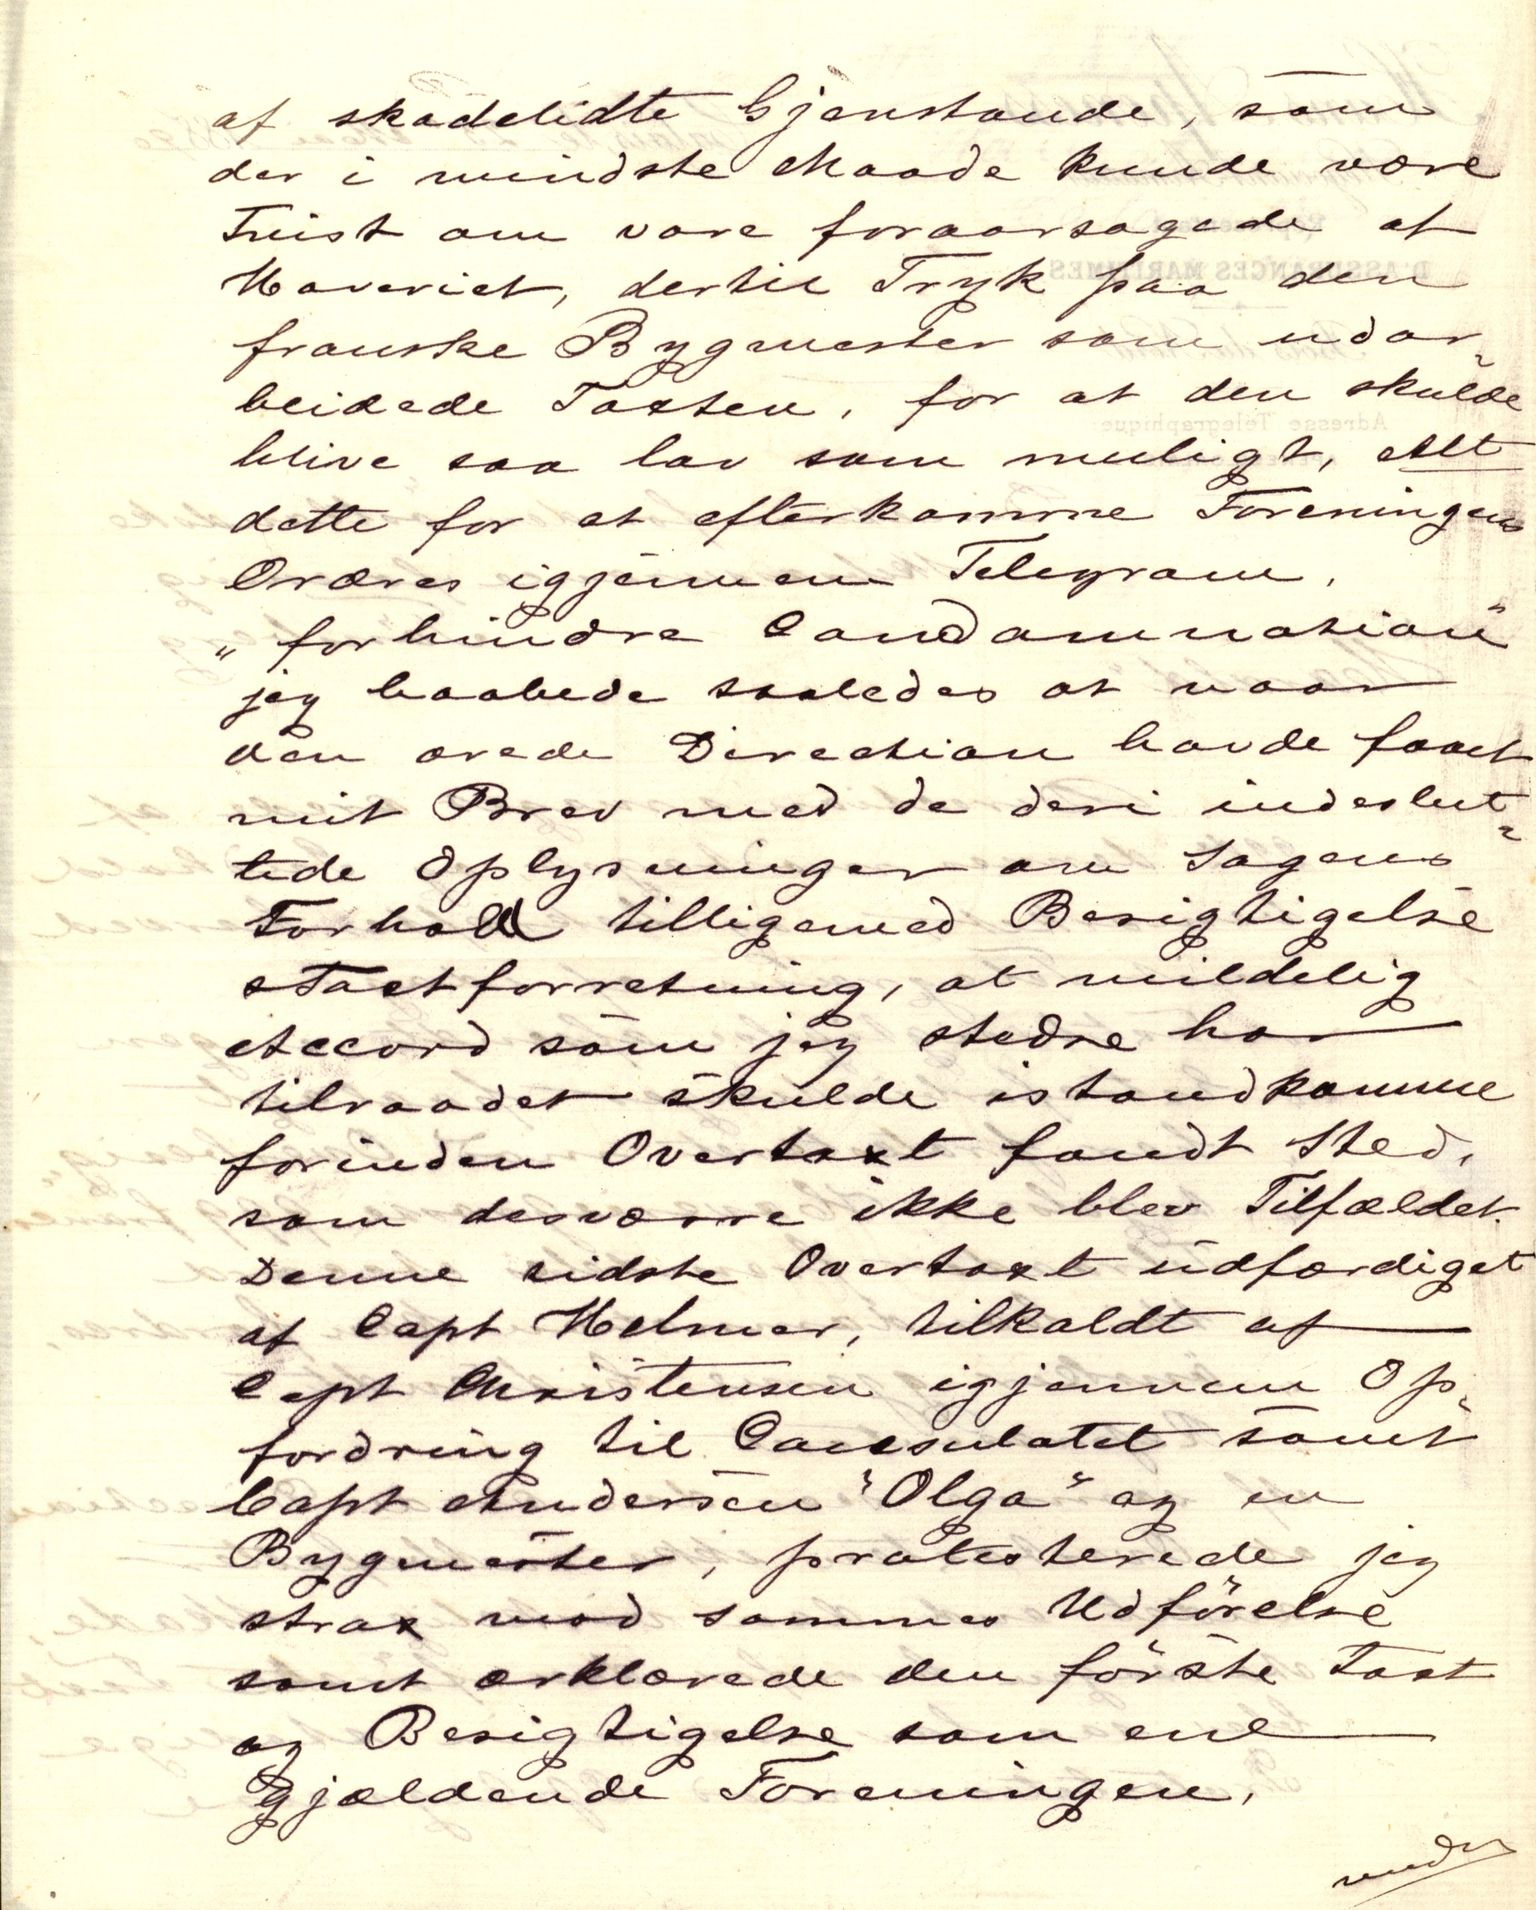 af skadelidte Gjenstande, som
der i mindste Maade kunde være
Tvist om vare foraarsagede af
Havariet, dertil Tryk paa den
franske Bygmester som udar-
beidede Taxten, for at den skulde
blive saa lav som muligt, Alt
dette for at efterkomme Foreningens
Ordres igjennem Telegram,
"forhindre Condamnation"
jeg haabede saaledes at naar
den ærede Direction havde faaet
mit Brev med de deri indeslut-
tede Oplysninger om Sagens
Forhold tilligemed Besigtigelse
& Taxtforretning, at mildelig
Accord som jeg stedse har
tilraadet skulde istandkomme
forinden Overtaxt fandt Sted,
som desværre ikke blev Tilfældet.
Denne sidste Overtaxt udfærdiget
af Capt Helmer, tilkaldt af
Capt Christensen igjennem Op-
fordring til Consulatet samt
Capt Andersen "Olga" og en
Bygmester, protesterede jeg
strax mod sammes Udförelse
samt erklærede den förste Taxt
og Besigtigelse som ene
gjældende Foreningen.
vend